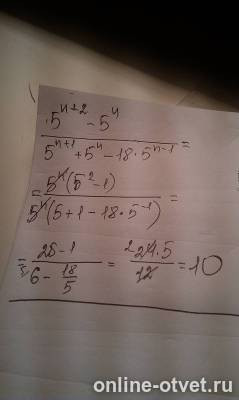 5^{n+2} - 5^n
5^{n+1} + 5^n - 18·5^{n-1} =
= 5^n(5^2-1)
5^n(5+1-18·5^{-1}) =
= 25-1 / 6 - 18/5 = 24·5 / 12 = 10
online-otvet.ru